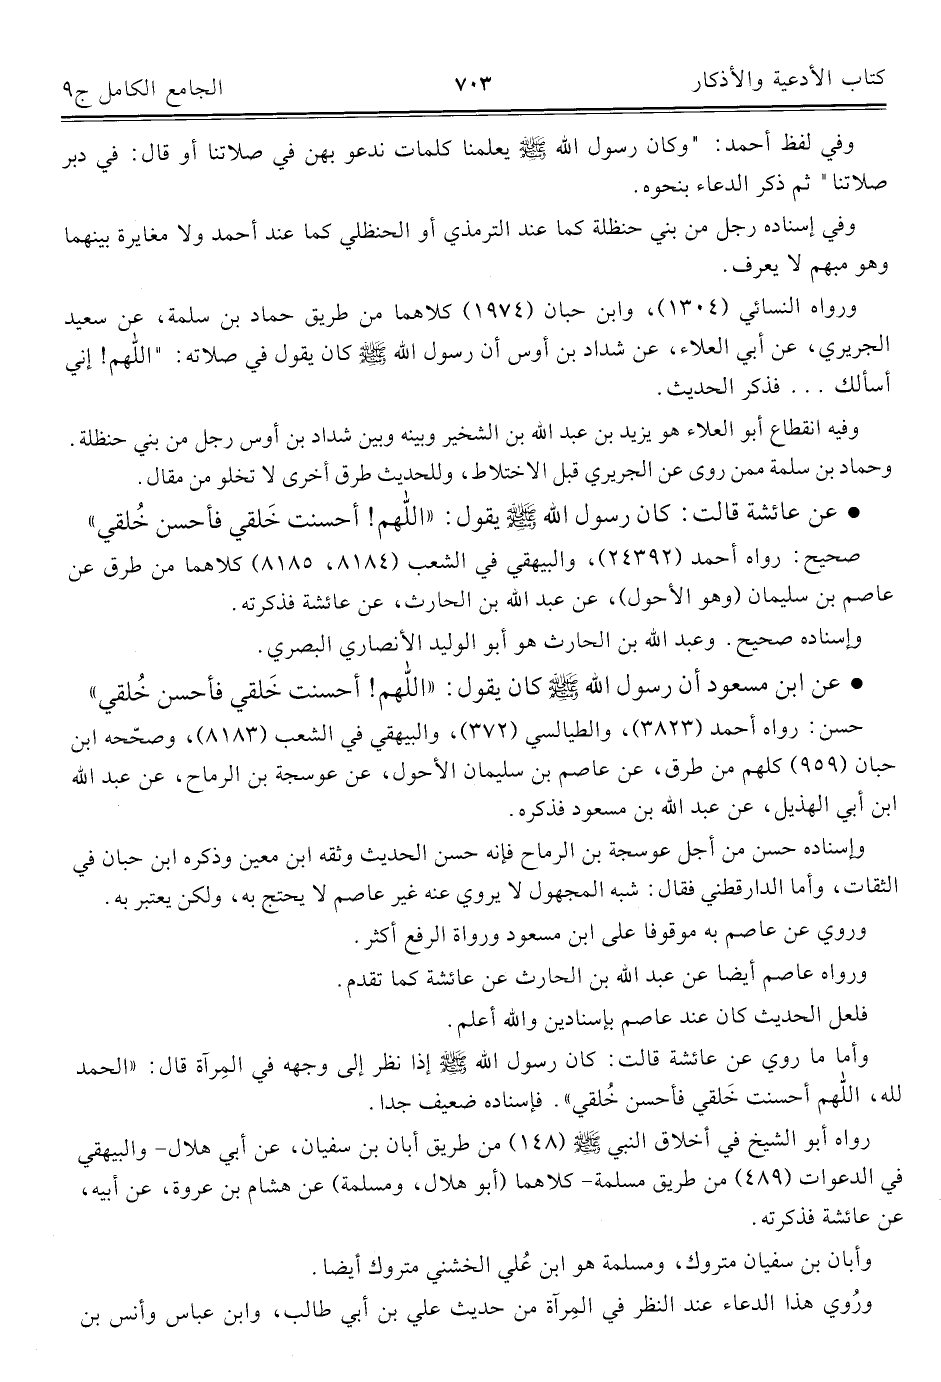 كتاب الأدعية والأذكار ٧٠٣ الجامع الكامل ج٩
وفي لفظ أحمد: "وكان رسول الله ﷺ يعلمنا كلمات ندعو بهن في صلاتنا أو قال: في دبر
صلاتنا" ثم ذكر الدعاء بنحوه.
وفي إسناده رجل من بني حنظلة كما عند الترمذي أو الحنظلي كما عند أحمد ولا مغايرة بينهما
وهو مبهم لا يعرف.
ورواه النسائي (١٣٠٤)، وابن حبان (١٩٧٤) كلاهما من طريق حماد بن سلمة، عن سعيد
الجريري، عن أبي العلاء، عن شداد بن أوس أن رسول الله ﷺ كان يقول في صلاته: "اللَّهم! إني
أسألك ... فذكر الحديث.
وفيه انقطاع أبو العلاء هو يزيد بن عبد الله بن الشخير وبينه وبين شداد بن أوس رجل من بني حنظلة.
وحماد بن سلمة ممن روى عن الجريري قبل الاختلاط، وللحديث طرق أخرى لا تخلو من مقال.
• عن عائشة قالت: كان رسول الله ﷺ يقول: «اللَّهم! أحسنت خَلقي فأحسن خُلقي»
صحيح: رواه أحمد (٢٤٣٩٢)، والبيهقي في الشعب (٨١٨٤، ٨١٨٥) كلاهما من طرق عن
عاصم بن سليمان (وهو الأحول)، عن عبد الله بن الحارث، عن عائشة فذكرته.
وإسناده صحيح. وعبد الله بن الحارث هو أبو الوليد الأنصاري البصري.
• عن ابن مسعود أن رسول الله ﷺ كان يقول: «اللَّهم! أحسنت خَلقي فأحسن خُلقي»
حسن: رواه أحمد (٣٨٢٣)، والطيالسي (٣٧٢)، والبيهقي في الشعب (٨١٨٣)، وصحّحه ابن
حبان (٩٥٩) كلهم من طرق، عن عاصم بن سليمان الأحول، عن عوسجة بن الرماح، عن عبد الله
ابن أبي الهذيل، عن عبد الله بن مسعود فذكره.
وإسناده حسن من أجل عوسجة بن الرماح فإنه حسن الحديث وثقه ابن معين وذكره ابن حبان في
الثقات، وأما الدارقطني فقال: شبه المجهول لا يروي عنه غير عاصم لا يحتج به، ولكن يعتبر به.
وروي عن عاصم به موقوفا على ابن مسعود ورواة الرفع أكثر.
ورواه عاصم أيضا عن عبد الله بن الحارث عن عائشة كما تقدم.
فلعل الحديث كان عند عاصم بإسنادين والله أعلم.
وأما ما روي عن عائشة قالت: كان رسول الله ﷺ إذا نظر إلى وجهه في المِرآة قال: «الحمد
لله، اللَّهم أحسنت خَلقي فأحسن خُلقي». فإسناده ضعيف جدا.
رواه أبو الشيخ في أخلاق النبي ﷺ (١٤٨) من طريق أبان بن سفيان، عن أبي هلال- والبيهقي
في الدعوات (٤٨٩) من طريق مسلمة- كلاهما (أبو هلال، ومسلمة) عن هشام بن عروة، عن أبيه،
عن عائشة فذكرته.
وأبان بن سفيان متروك، ومسلمة هو ابن عُلي الخشني متروك أيضا.
ورُوي هذا الدعاء عند النظر في المِرآة من حديث علي بن أبي طالب، وابن عباس وأنس بن